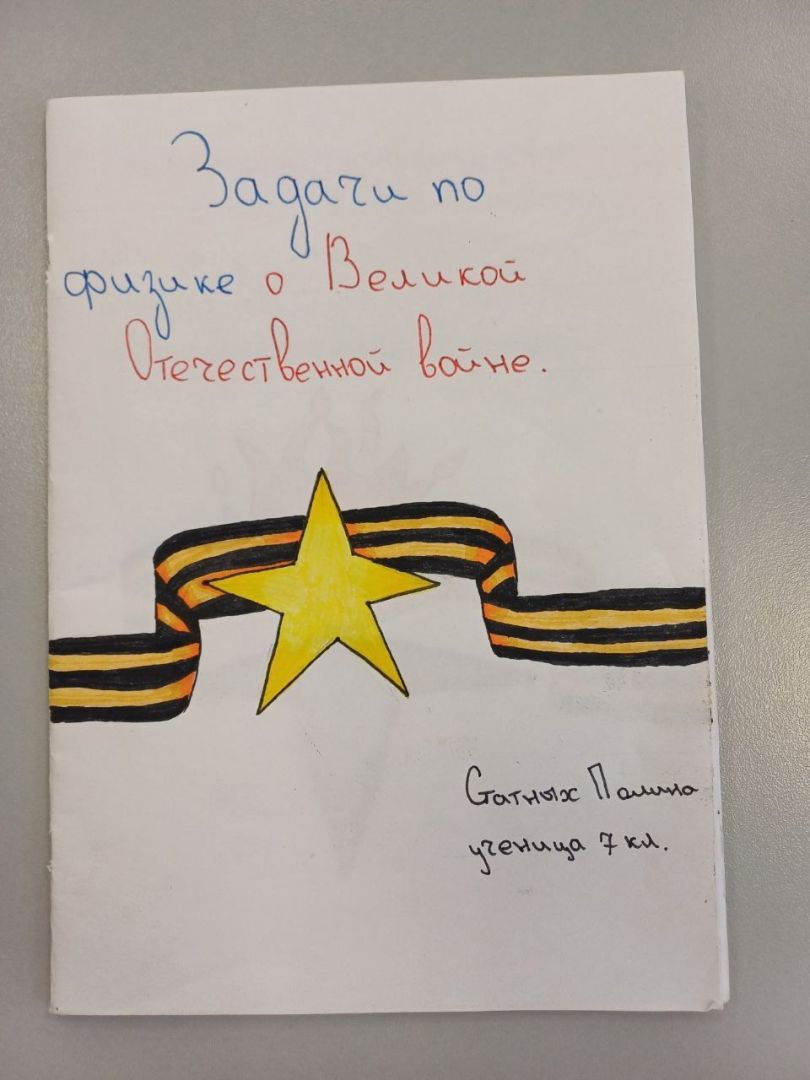 Задачи по
физике о Великой
Отечественной войне.
Статных Полина
ученица 7 кл.